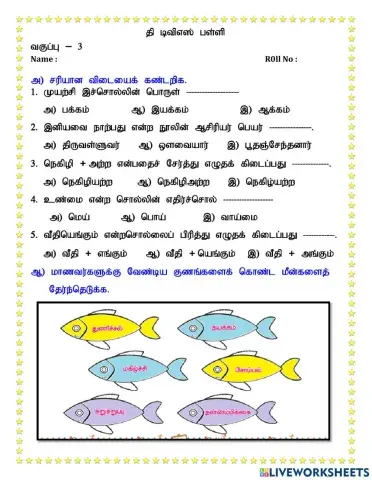 தி டிவிஎஸ் பள்ளி
வகுப்பு – 3
Name : Roll No :
அ) சரியான விடையைக் கண்டறிக.
1. முயற்சி இச்சொல்லின் பொருள் --------------------
அ) பக்கம் ஆ) இயக்கம் இ) ஆக்கம்
2. இனியவை நாற்பது என்ற நூலின் ஆசிரியர் பெயர் ----------------.
அ) திருவள்ளுவர் ஆ) ஔவையார் இ) பூதஞ்சேந்தனார்
3. நெகிழி + அற்ற என்பதைச் சேர்த்து எழுதக் கிடைப்பது --------------.
அ) நெகிழியற்ற ஆ) நெகிழிஅற்ற இ) நெகிழ்யற்ற
4. உண்மை என்ற சொல்லின் எதிர்ச்சொல் -------------------
அ) மெய் ஆ) பொய் இ) வாய்மை
5. வீதியெங்கும் என்றசொல்லைப் பிரித்து எழுதக் கிடைப்பது ------------.
அ) வீதி + எங்கும் ஆ) வீதி +யெங்கும் இ) வீதி + அங்கும்
ஆ) மாணவர்களுக்கு வேண்டிய குணங்களைக் கொண்ட மீன்களைத்
தேர்ந்தெடுக்க.
துணிச்சல் தயக்கம்
மகிழ்ச்சி
சுறுசுறுப்பு தன்னம்பிக்கை
LIVEWORKSHEETS